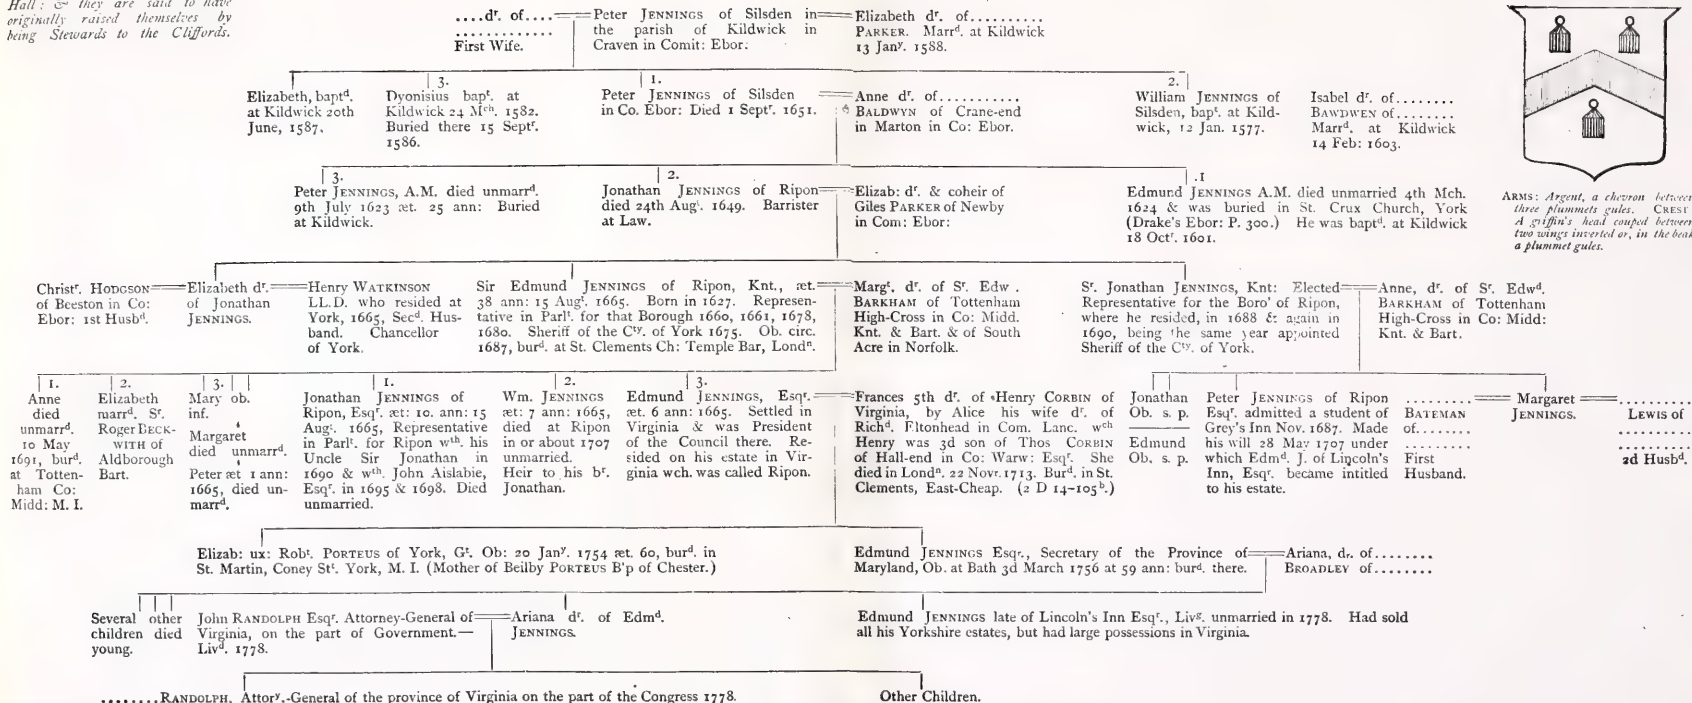 Hall: & they are said to have
originally raised themselves by
being Stewards to the Cliffords.
....dr. of....
.............
First Wife.
Peter JENNINGS of Silsden in
the parish of Kildwick in
Craven in Comit: Ebor:
Elizabeth dr. of..........
PARKER. Marrd. at Kildwick
13 Jany. 1588.
Elizabeth, baptd.
at Kildwick 20th
June, 1587.
3.
Dyonisius bapt. at
Kildwick 24 Mch. 1582.
Buried there 15 Septr.
1586.
1.
Peter JENNINGS of Silsden
in Co. Ebor: Died 1 Septr. 1651.
Anne dr. of...........
BALDWYN of Crane-end
in Marton in Co: Ebor.
2.
William JENNINGS of
Silsden, bapt. at Kild-
wick, 12 Jan. 1577.
Isabel dr. of........
BAWDWEN of........
Marrd. at Kildwick
14 Feb: 1603.
ARMS: Argent, a chevron between
three plummets gules. CREST
A griffin's head couped between
two wings inverted or, in the beak
a plummet gules.
3.
Peter JENNINGS, A.M. died unmarrd.
9th July 1623 æt. 25 ann: Buried
at Kildwick.
2.
Jonathan JENNINGS of Ripon
died 24th Augt. 1649. Barrister
at Law.
Elizab: dr. & coheir of
Giles PARKER of Newby
in Com: Ebor:
.1
Edmund JENNINGS A.M. died unmarried 4th Mch.
1624 & was buried in St. Crux Church, York
(Drake's Ebor: P. 300.) He was baptd. at Kildwick
18 Octr. 1601.
Christr. HODGSON
of Beeston in Co:
Ebor: 1st Husbd.
Elizabeth dr.
of Jonathan
JENNINGS.
Henry WATKINSON
LL.D. who resided at
York, 1665, Secd. Hus-
band. Chancellor
of York.
Sir Edmund JENNINGS of Ripon, Knt., æt.
38 ann: 15 Augt. 1665. Born in 1627. Represen-
tative in Parlt. for that Borough 1660, 1661, 1678,
1680. Sheriff of the Cty. of York 1675. Ob. circ.
1687, burd. at St. Clements Ch: Temple Bar, Londn.
Margt. dr. of Sr. Edw.
BARKHAM of Tottenham
High-Cross in Co: Midd.
Knt. & Bart. & of South
Acre in Norfolk.
Sr. Jonathan JENNINGS, Knt: Elected
Representative for the Boro' of Ripon,
where he resided, in 1688 & again in
1690, being the same year appointed
Sheriff of the Cty. of York.
Anne, dr. of Sr. Edwd.
BARKHAM of Tottenham
High-Cross in Co: Midd:
Knt. & Bart.
1.
Anne
died
unmarrd.
10 May
1691, burd.
at Totten-
ham Co:
Midd: M. I.
2.
Elizabeth
marrd. Sr.
Roger BECK-
WITH of
Aldborough
Bart.
3.
Mary ob.
inf.
Margaret
died unmarrd.
Peter æt 1 ann:
1665, died un-
marrd.
1.
Jonathan JENNINGS of
Ripon, Esqr. æt: 10. ann: 15
Augt. 1665, Representative
in Parlt. for Ripon wth. his
Uncle Sir Jonathan in
1690 & wth. John Aislabie,
Esqr. in 1695 & 1698. Died
unmarried.
2.
Wm. JENNINGS
æt: 7 ann: 1665,
died at Ripon
in or about 1707
unmarried.
Heir to his br.
Jonathan.
3.
Edmund JENNINGS, Esqr.
æt. 6 ann: 1665. Settled in
Virginia & was President
of the Council there. Re-
sided on his estate in Vir-
ginia wch. was called Ripon.
Frances 5th dr. of Henry CORBIN of
Virginia, by Alice his wife dr. of
Richd. Eltonhead in Com. Lanc. wch
Henry was 3d son of Thos CORBIN
of Hall-end in Co: Warw: Esqr. She
died in Londn. 22 Novr. 1713. Burd. in St.
Clements, East-Cheap. (2 D 14-105b.)
Jonathan
Ob. s. p.
Edmund
Ob. s. p.
Peter JENNINGS of Ripon
Esqr. admitted a student of
Grey's Inn Nov. 1687. Made
his will 28 May 1707 under
which Edmd. J. of Lincoln's
Inn, Esqr. became intitled
to his estate.
..........
BATEMAN
of........
..........
First
Husband.
Margaret
JENNINGS.
..........
LEWIS of
..........
..........
2d Husbd.
Elizab: ux: Robt. PORTEUS of York, Gt. Ob: 20 Jany. 1754 æt. 60, burd. in
St. Martin, Coney Stt. York, M. I. (Mother of Beilby PORTEUS B'p of Chester.)
Edmund JENNINGS Esqr., Secretary of the Province of
Maryland, Ob. at Bath 3d March 1756 at 59 ann: burd. there.
Ariana, dr. of........
BROADLEY of........
Several other
children died
young.
John RANDOLPH Esqr. Attorney-General of
Virginia, on the part of Government.—
Livd. 1778.
Ariana dr. of Edmd.
JENNINGS.
Edmund JENNINGS late of Lincoln's Inn Esqr., Livg. unmarried in 1778. Had sold
all his Yorkshire estates, but had large possessions in Virginia.
........RANDOLPH, Attory.-General of the province of Virginia on the part of the Congress 1778.
Other Children.